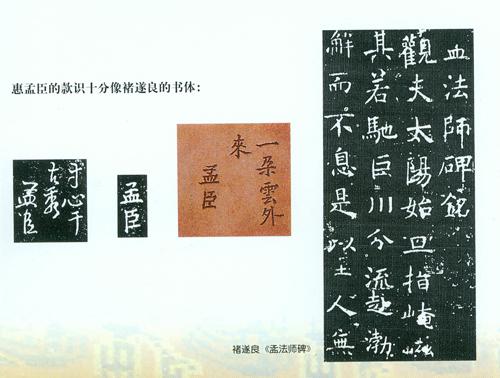 惠孟臣的款识十分像褚遂良的书体：
心千
孟臣
孟臣
一朵雲外
來
孟臣
法師碑銘
觀夫太陽始旦指崦嵫
其若馳巨川分流赴渤
而不息是以至人無
褚遂良《孟法师碑》